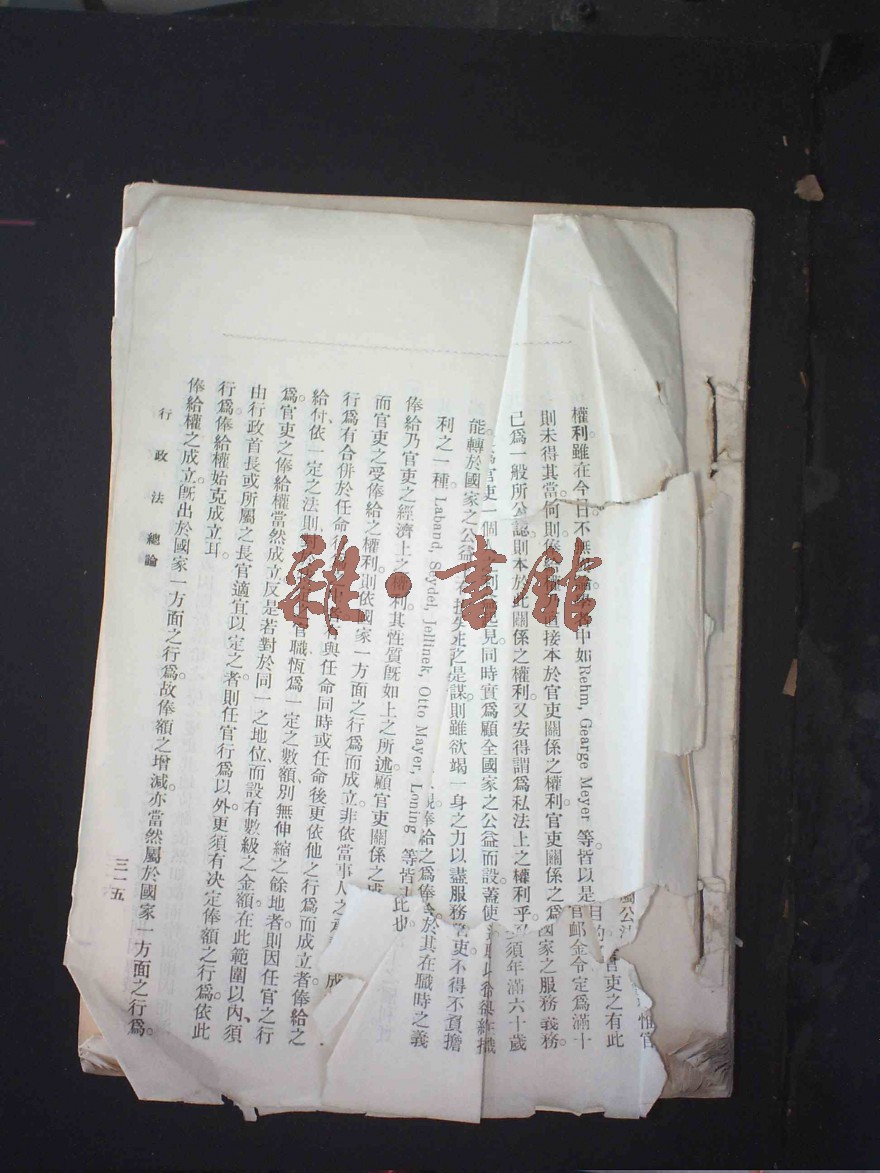 權利。雖在今日不無
中如Rehm, Gearge Meyer 等皆以是
則未得其當。何則
直接本於官吏關係之權利。官吏關係之爲
國家之服務義務。
已爲一般所公認。則本於此關係之權利。又安得謂爲私法上之權利乎。
須年滿六十歲
官吏一個
見。同時實爲顧全國家之公益而設。蓋使
能轉於國家之公益
是謀。則雖欲竭一身之力以盡服務
吏不得不負擔
利之一種。Laband, Seydel, Jellinek, Otto Mayer, Loning 等皆主此也
奉給之爲俸
於其在職時之義
俸給乃官吏之經濟上之權利。其性質既如上之所述。顧官吏關係之成
而官吏之受俸給之權利。則依國家一方面之行爲而成立。非依當事人之
成
行爲有合併於任命
與任命同時或任命後更依他之行爲而成立者。俸給之
給付、依一定之法則對
官職恆爲一定之數額、別無伸縮之餘地者、則因任官之行
爲。官吏之俸給權當然成立。反是若對於同一之地位、而設有數級之金額。在此範圍以內、須
由行政首長或所屬之長官適宜以定之者、則任官行爲以外、更須有決定俸額之行爲。依此
行爲、俸給權始克成立耳。
俸給權之成立。既出於國家一方面之行爲。故俸額之增減。亦當然屬於國家一方面之行爲。
行政法總論
三一五
官吏之有此
官邮金令定爲滿十
雜·書館